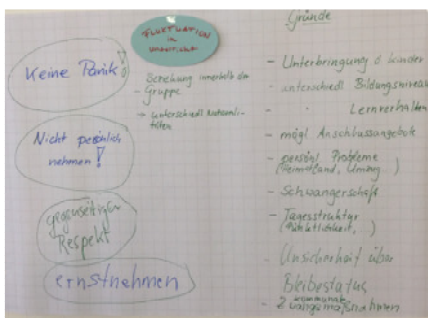 Keine Panik!
Nicht persönlich
nehmen!
gegenseitiger
Respekt
ernstnehmen
FLUKTUATION
im
UNTERRICHT
- Beziehung innerhalb der
Gruppe
→ unterschiedl. Nationali-
täten
Gründe
- Unterbringung d. Kinder
- unterschiedl. Bildungsniveau
- " Lernverhalten
- mögl. Anschlussangebote
- persönl. Probleme
(Heimatland, Umzug )
- Schwangerschaft
- Tagesstruktur
(Pünktlichkeit, )
- Unsicherheit über
Bleibestatus
- Zwangsmaßnahmen